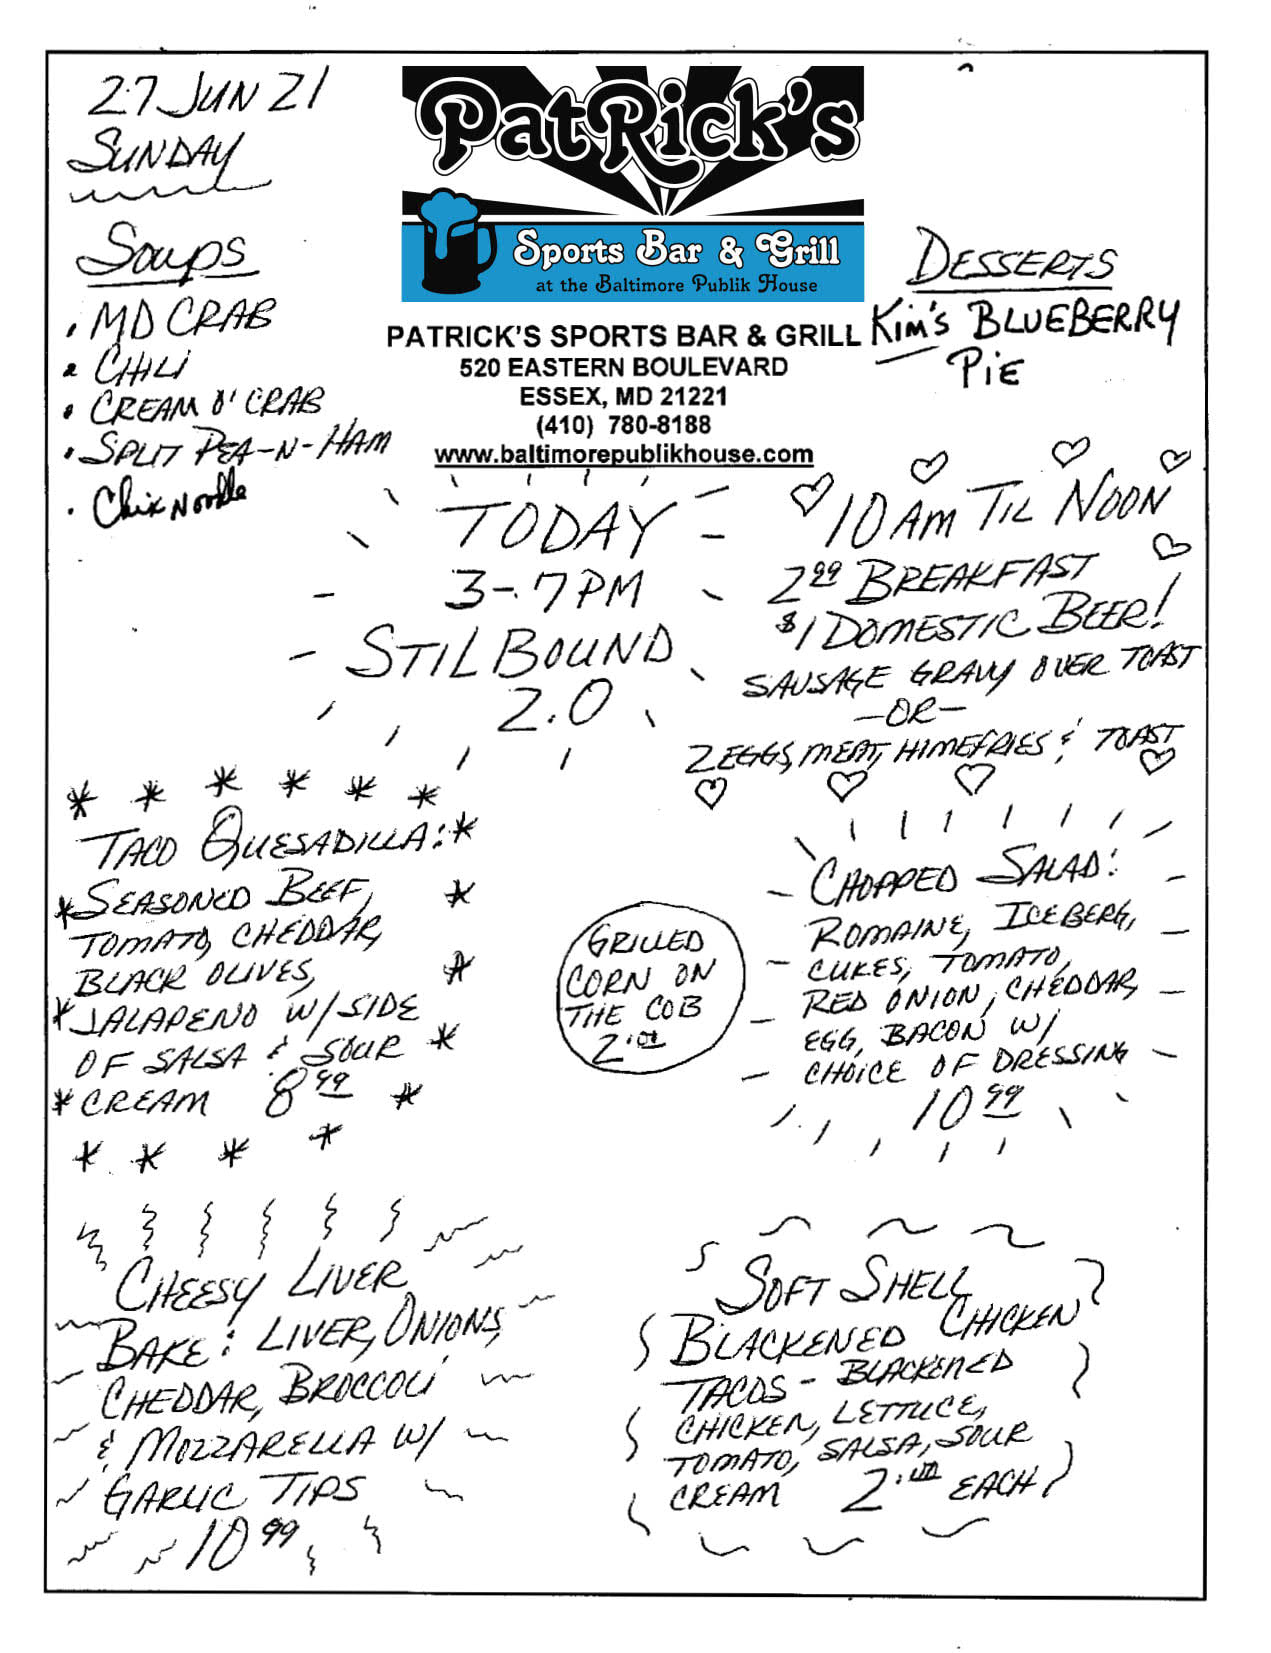 27 JUN 21
SUNDAY
PatRick's
Sports Bar & Grill
at the Baltimore Publik House
PATRICK'S SPORTS BAR & GRILL
520 EASTERN BOULEVARD
ESSEX, MD 21221
(410) 780-8188
www.baltimorepublikhouse.com
SOUPS
• MD CRAB
• CHILI
• CREAM O' CRAB
• SPLIT PEA-N-HAM
• Chix Noodle
DESSERTS
KiM'S BLUEBERRY
PiE
TODAY
3-7PM
STIL BOUND
2.0
10 AM TIL NOON
2.99 BREAKFAST
$1 DOMESTIC BEER!
SAUSAGE GRAVY OVER TOAST
-OR-
2 EGGS, MEAT, HIMEFRIES & TOAST
TACO QUESADILLA:
SEASONED BEEF,
TOMATO, CHEDDAR,
BLACK OLIVES,
JALAPENO W/SIDE
OF SALSA & SOUR
CREAM 8.99
GRILLED
CORN ON
THE COB
2.00
CHOPPED SALAD:
ROMAINE, ICEBERG,
CUKES, TOMATO,
RED ONION, CHEDDAR,
EGG, BACON W/
CHOICE OF DRESSING
10.99
CHEESY LIVER
BAKE: LIVER, ONIONS,
CHEDDAR, BROCCOLI
& MOZZARELLA W/
GARLIC TIPS
10.99
SOFT SHELL
BLACKENED CHICKEN
TACOS - BLACKENED
CHICKEN, LETTUCE,
TOMATO, SALSA, SOUR
CREAM 2.00 EACH